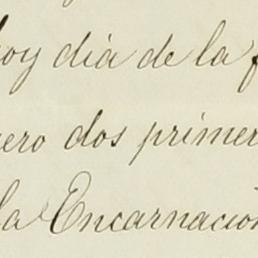 hoy dia de la f
ero dos primer
la Encarnación